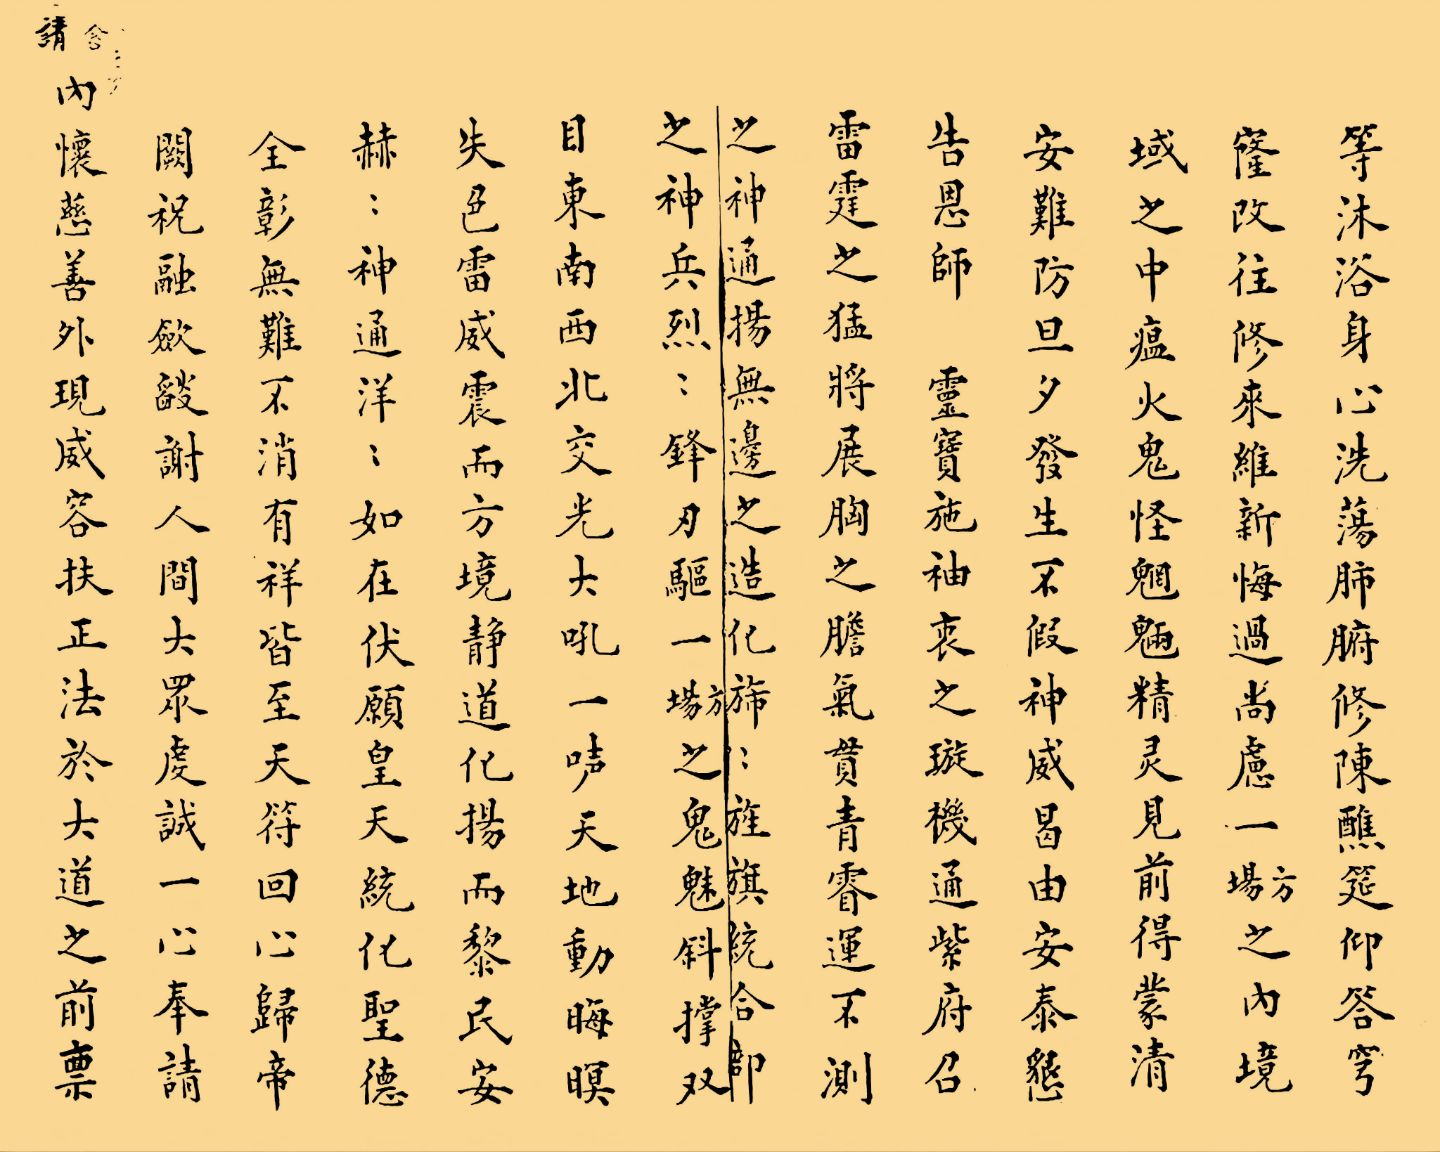 等沐浴身心洗蕩肺腑修陳醮筵仰答穹
窿改往修來維新悔過尚慮一方場之內境
域之中瘟火鬼怪魍魎精灵見前得蒙清
安難防旦夕發生不假神威曷由安泰懇
告恩師 靈寶施袖衷之璇機通紫府召
雷霆之猛將展胸之膽氣貫青霄運不測
之神通揚無邊之造化斾〻旌旗統合部
之神兵烈〻鋒刃驅一方場之鬼魅斜撑双
目東南西北交光大吼一吽天地動晦暝
失色雷威震而方境靜道化揚而黎民安
赫〻神通洋〻如在伏願皇天統化聖德
全彰無難不消有祥皆至天符回心歸帝
闕祝融歛燄謝人間大眾虔誠一心奉請
內懷慈善外現威容扶正法於大道之前禀
請